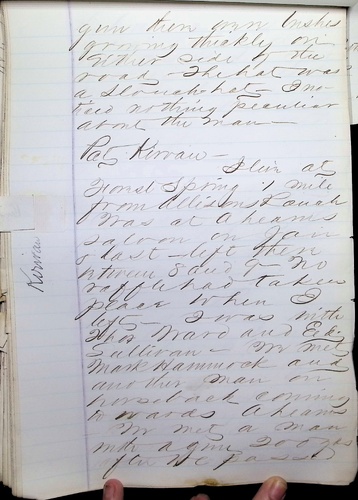 gun there were bushes
growing thickly on
either side of the
road. The hat was
a slouch hat - I no
ticed nothing peculiar
about the man -
Pat Kirwan -
I live at
Forest Spring 1 mile
from Allison Ranch
Was at Ahearns
saloon on
last - left there
between 5 and 6 - No
raffle had taken
place when I
left - I was with
Thos Ward and
Sullivan - We met
Mark Hammock and
another man on
horseback coming
towards Ahearns
We met a man
with a gun 200 yds
after we passed
Kirwan